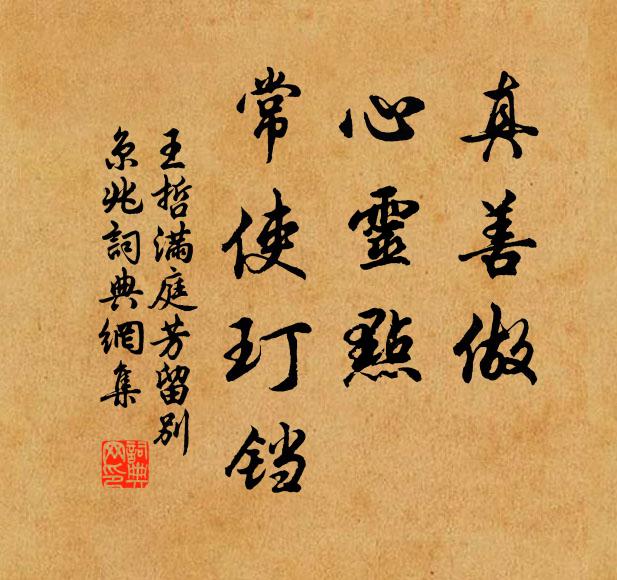 真善做
心靈點
常使玎铛
王哲滿庭芳留別
京兆詞典網集
詞典网印